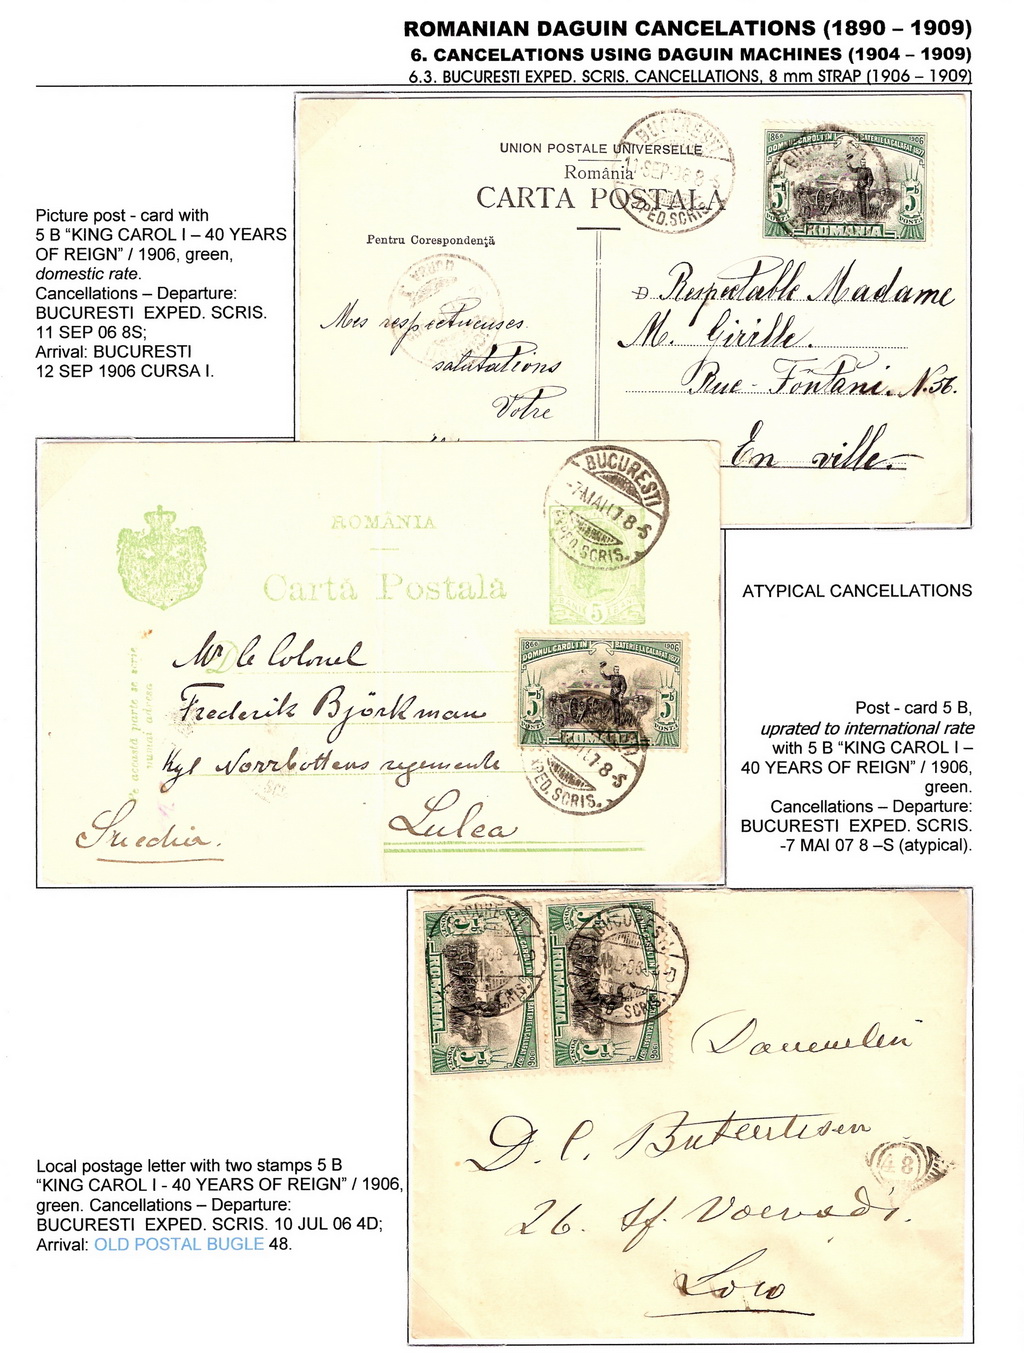 ROMANIAN DAGUIN CANCELATIONS (1890 – 1909)
6. CANCELATIONS USING DAGUIN MACHINES (1904 – 1909)
6.3. BUCURESTI EXPED. SCRIS. CANCELLATIONS, 8 mm STRAP (1906 – 1909)
Picture post - card with
5 B “KING CAROL I – 40 YEARS
OF REIGN” / 1906, green,
domestic rate.
Cancellations – Departure:
BUCURESTI EXPED. SCRIS.
11 SEP 06 8S;
Arrival: BUCURESTI
12 SEP 1906 CURSA I.
UNION POSTALE UNIVERSELLE
Romània
CARTA POSTALA
Pentru Corespondență
BUCURESTI
11 SEP-06 8-S
EXPED.SCRIS.
1866 1906
DOMNUL CAROL I IN BATERIE LA CALAFAT 1877
5B 5B
ROMANIA
Mes respectueuses
salutations
Votre
D Respectable Madame
M. Cirille.
Rue - Fontani. N. 56.
En ville.
ROMÂNIA
Cartă Postala
Pe această parte se scrie
numai adresa
BUCURESTI
-7 MAI 07 8-S
EXPED.SCRIS.
5
1866 1906
DOMNUL CAROL I IN BATERIE LA CALAFAT 1877
5B 5B
ROMANIA
MAI 07 8-S
EXPED.SCRIS.
D
Mr le Colonel
Frederik Björkman
Kgl Norrbottens regemente
Lulea
Suedia.
ATYPICAL CANCELLATIONS
Post - card 5 B,
uprated to international rate
with 5 B “KING CAROL I –
40 YEARS OF REIGN” / 1906,
green.
Cancellations – Departure:
BUCURESTI EXPED. SCRIS.
-7 MAI 07 8 –S (atypical).
Local postage letter with two stamps 5 B
“KING CAROL I - 40 YEARS OF REIGN” / 1906,
green. Cancellations – Departure:
BUCURESTI EXPED. SCRIS. 10 JUL 06 4D;
Arrival: OLD POSTAL BUGLE 48.
5B ROMANIA 5B
5B ROMANIA 5B
BUCURESTI
SCRIS
D. C.
26. Sf. Voevodi.
Loco
48